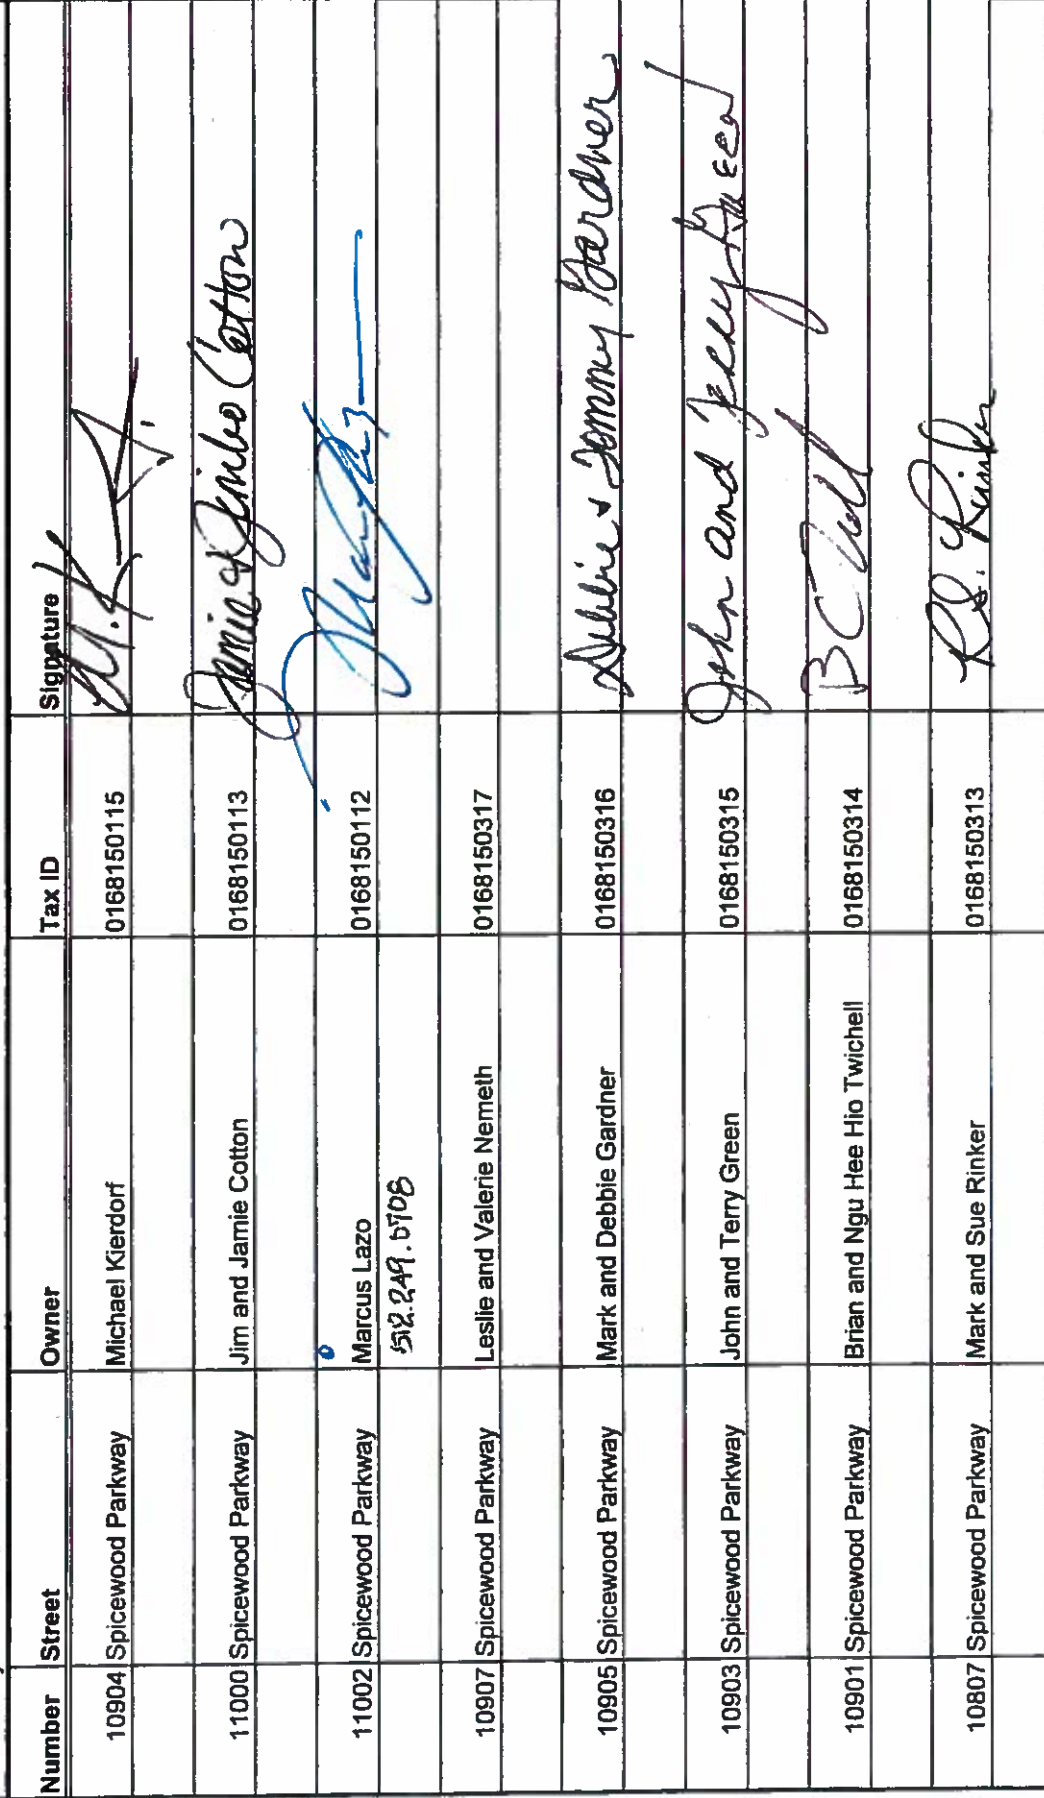 Number Street Owner Tax ID Signature
10904 Spicewood Parkway Michael Kierdorf 0168150115
11000 Spicewood Parkway Jim and Jamie Cotton 0168150113 Jamie & Jimbo Cotton
11002 Spicewood Parkway Marcus Lazo 0168150112
512.249.0708
10907 Spicewood Parkway Leslie and Valerie Nemeth 0168150317
10905 Spicewood Parkway Mark and Debbie Gardner 0168150316 Debbie & Tommy Gardner
10903 Spicewood Parkway John and Terry Green 0168150315 John and Terry Green
10901 Spicewood Parkway Brian and Ngu Hee Hio Twichell 0168150314
10807 Spicewood Parkway Mark and Sue Rinker 0168150313 Rinker